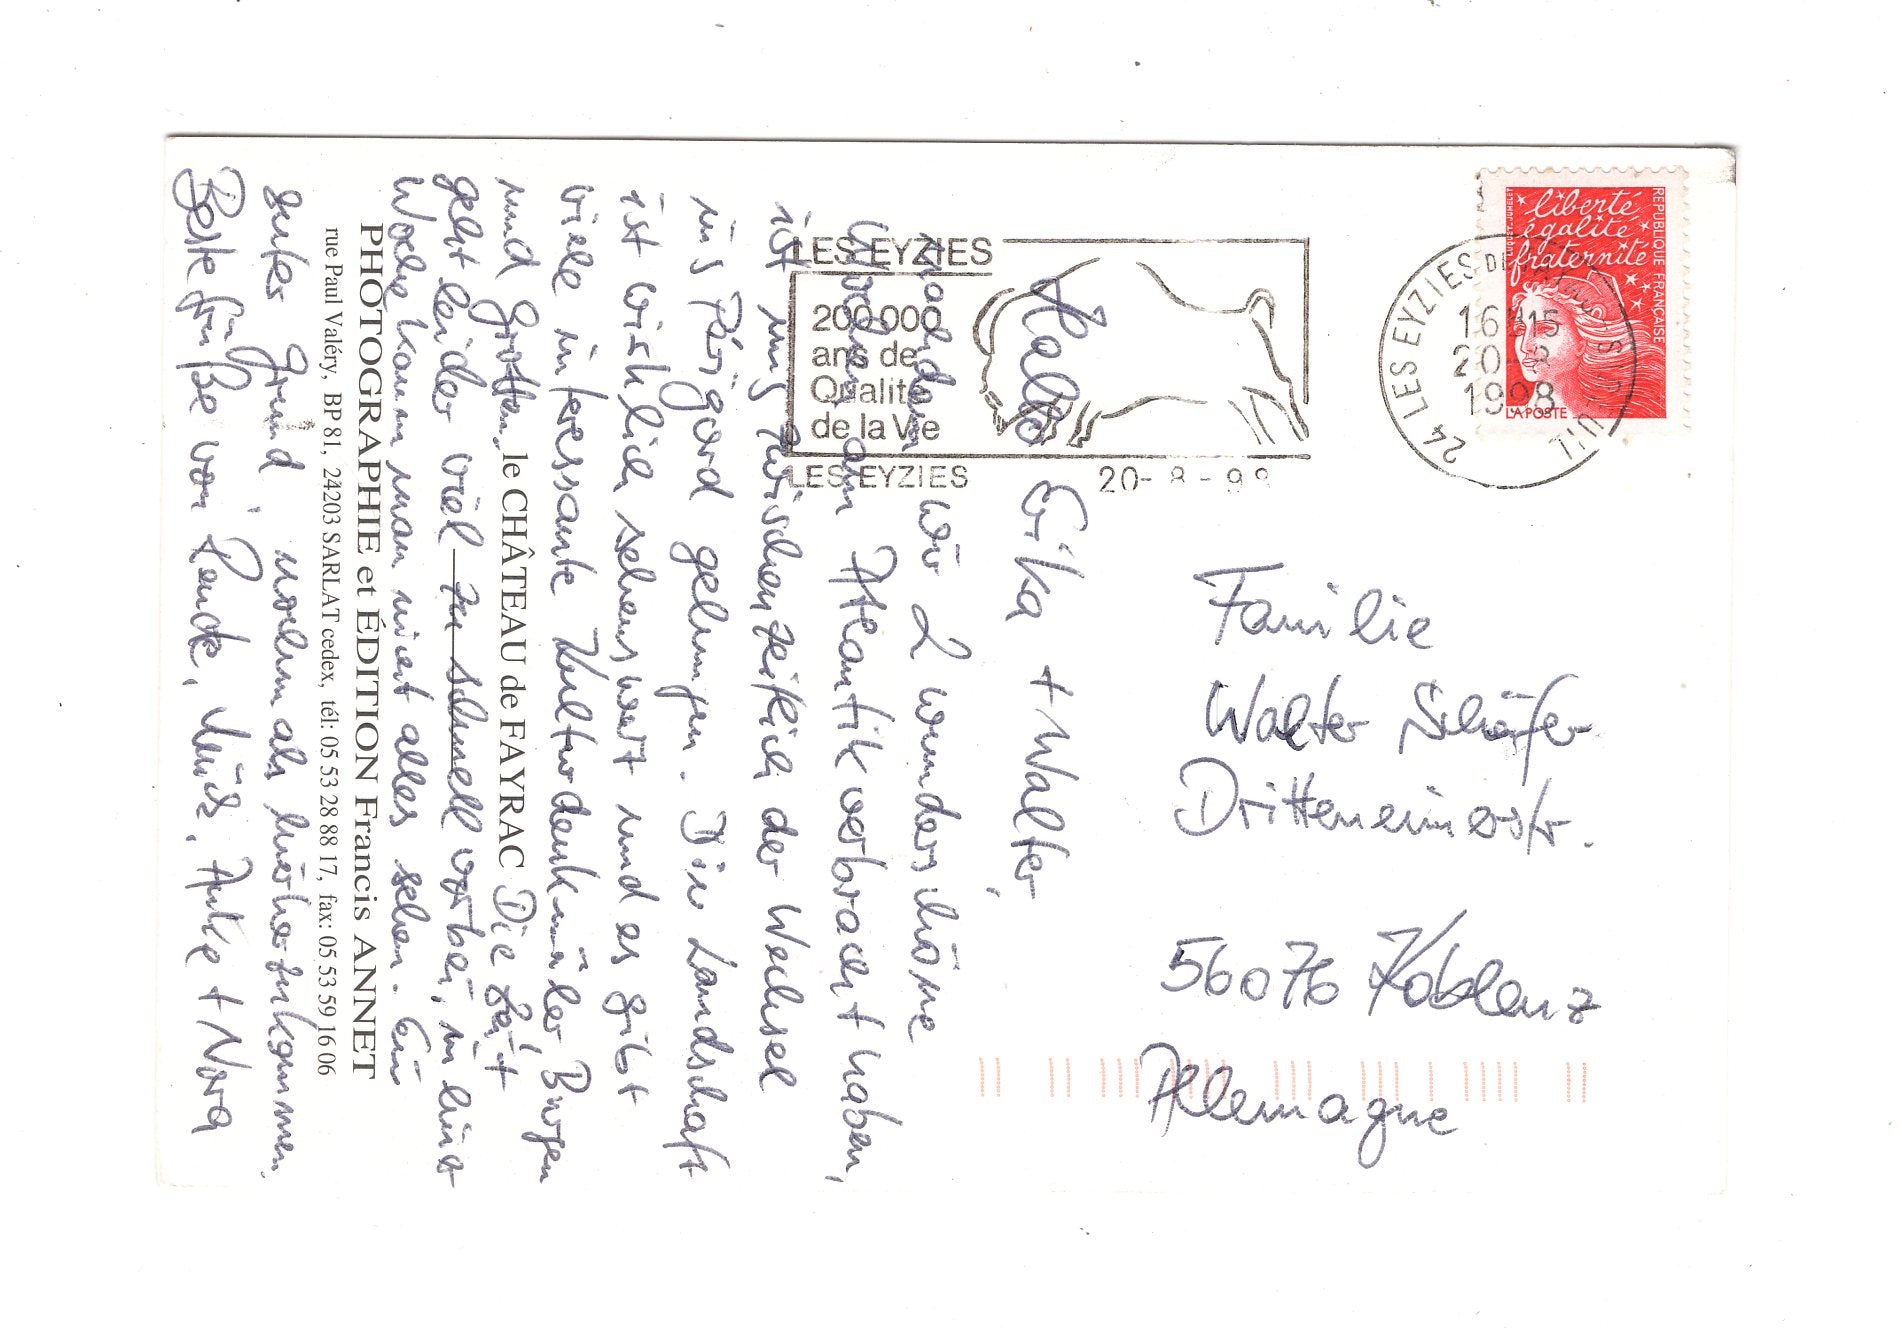 Hallo Erika + Walter,
nachdem wir 2 wunderschöne
Wochen am Atlantik verbracht haben,
ist uns zwischenzeitlich der Wechsel
ins Périgord gelungen. Die Landschaft
ist wirklich sehenswert und es gibt
viele interessante Kulturdenkmäler, Burgen
und Grotten. Die Zeit
geht leider viel zu schnell vorbei, in einer
Woche kann man nicht alles sehen. Ein
guter Grund nochmals hierherzukommen.
Beste Grüße von
Anke + Nora
le CHÂTEAU de FAYRAC
PHOTOGRAPHIE et ÉDITION Francis ANNET
rue Paul Valéry, BP 81, 24203 SARLAT cedex, tél: 05 53 28 88 17, fax: 05 53 59 16 06
LES EYZIES
200 000
ans de
Qualité
de la Vie
LES EYZIES 20-8-98
24 LES EYZIES DE
16H15
20-8
1998
liberté
égalité
fraternité
REPUBLIQUE FRANÇAISE
LA POSTE
Familie
Walter Schäfer
Dritteneimerstr.
56076 Koblenz
Allemagne